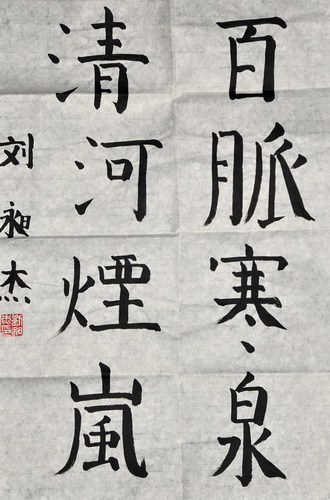 百脈寒泉
清河煙嵐
刘昶杰